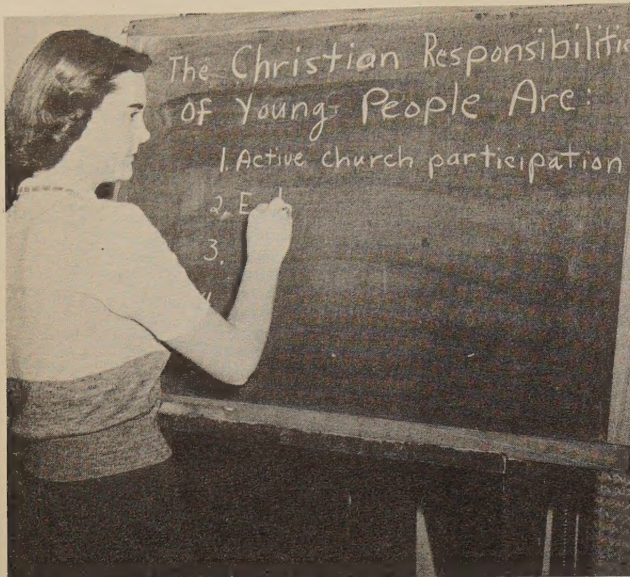 The Christian Responsibilitie
of Young People Are:
1. Active church participation
2, E
3.